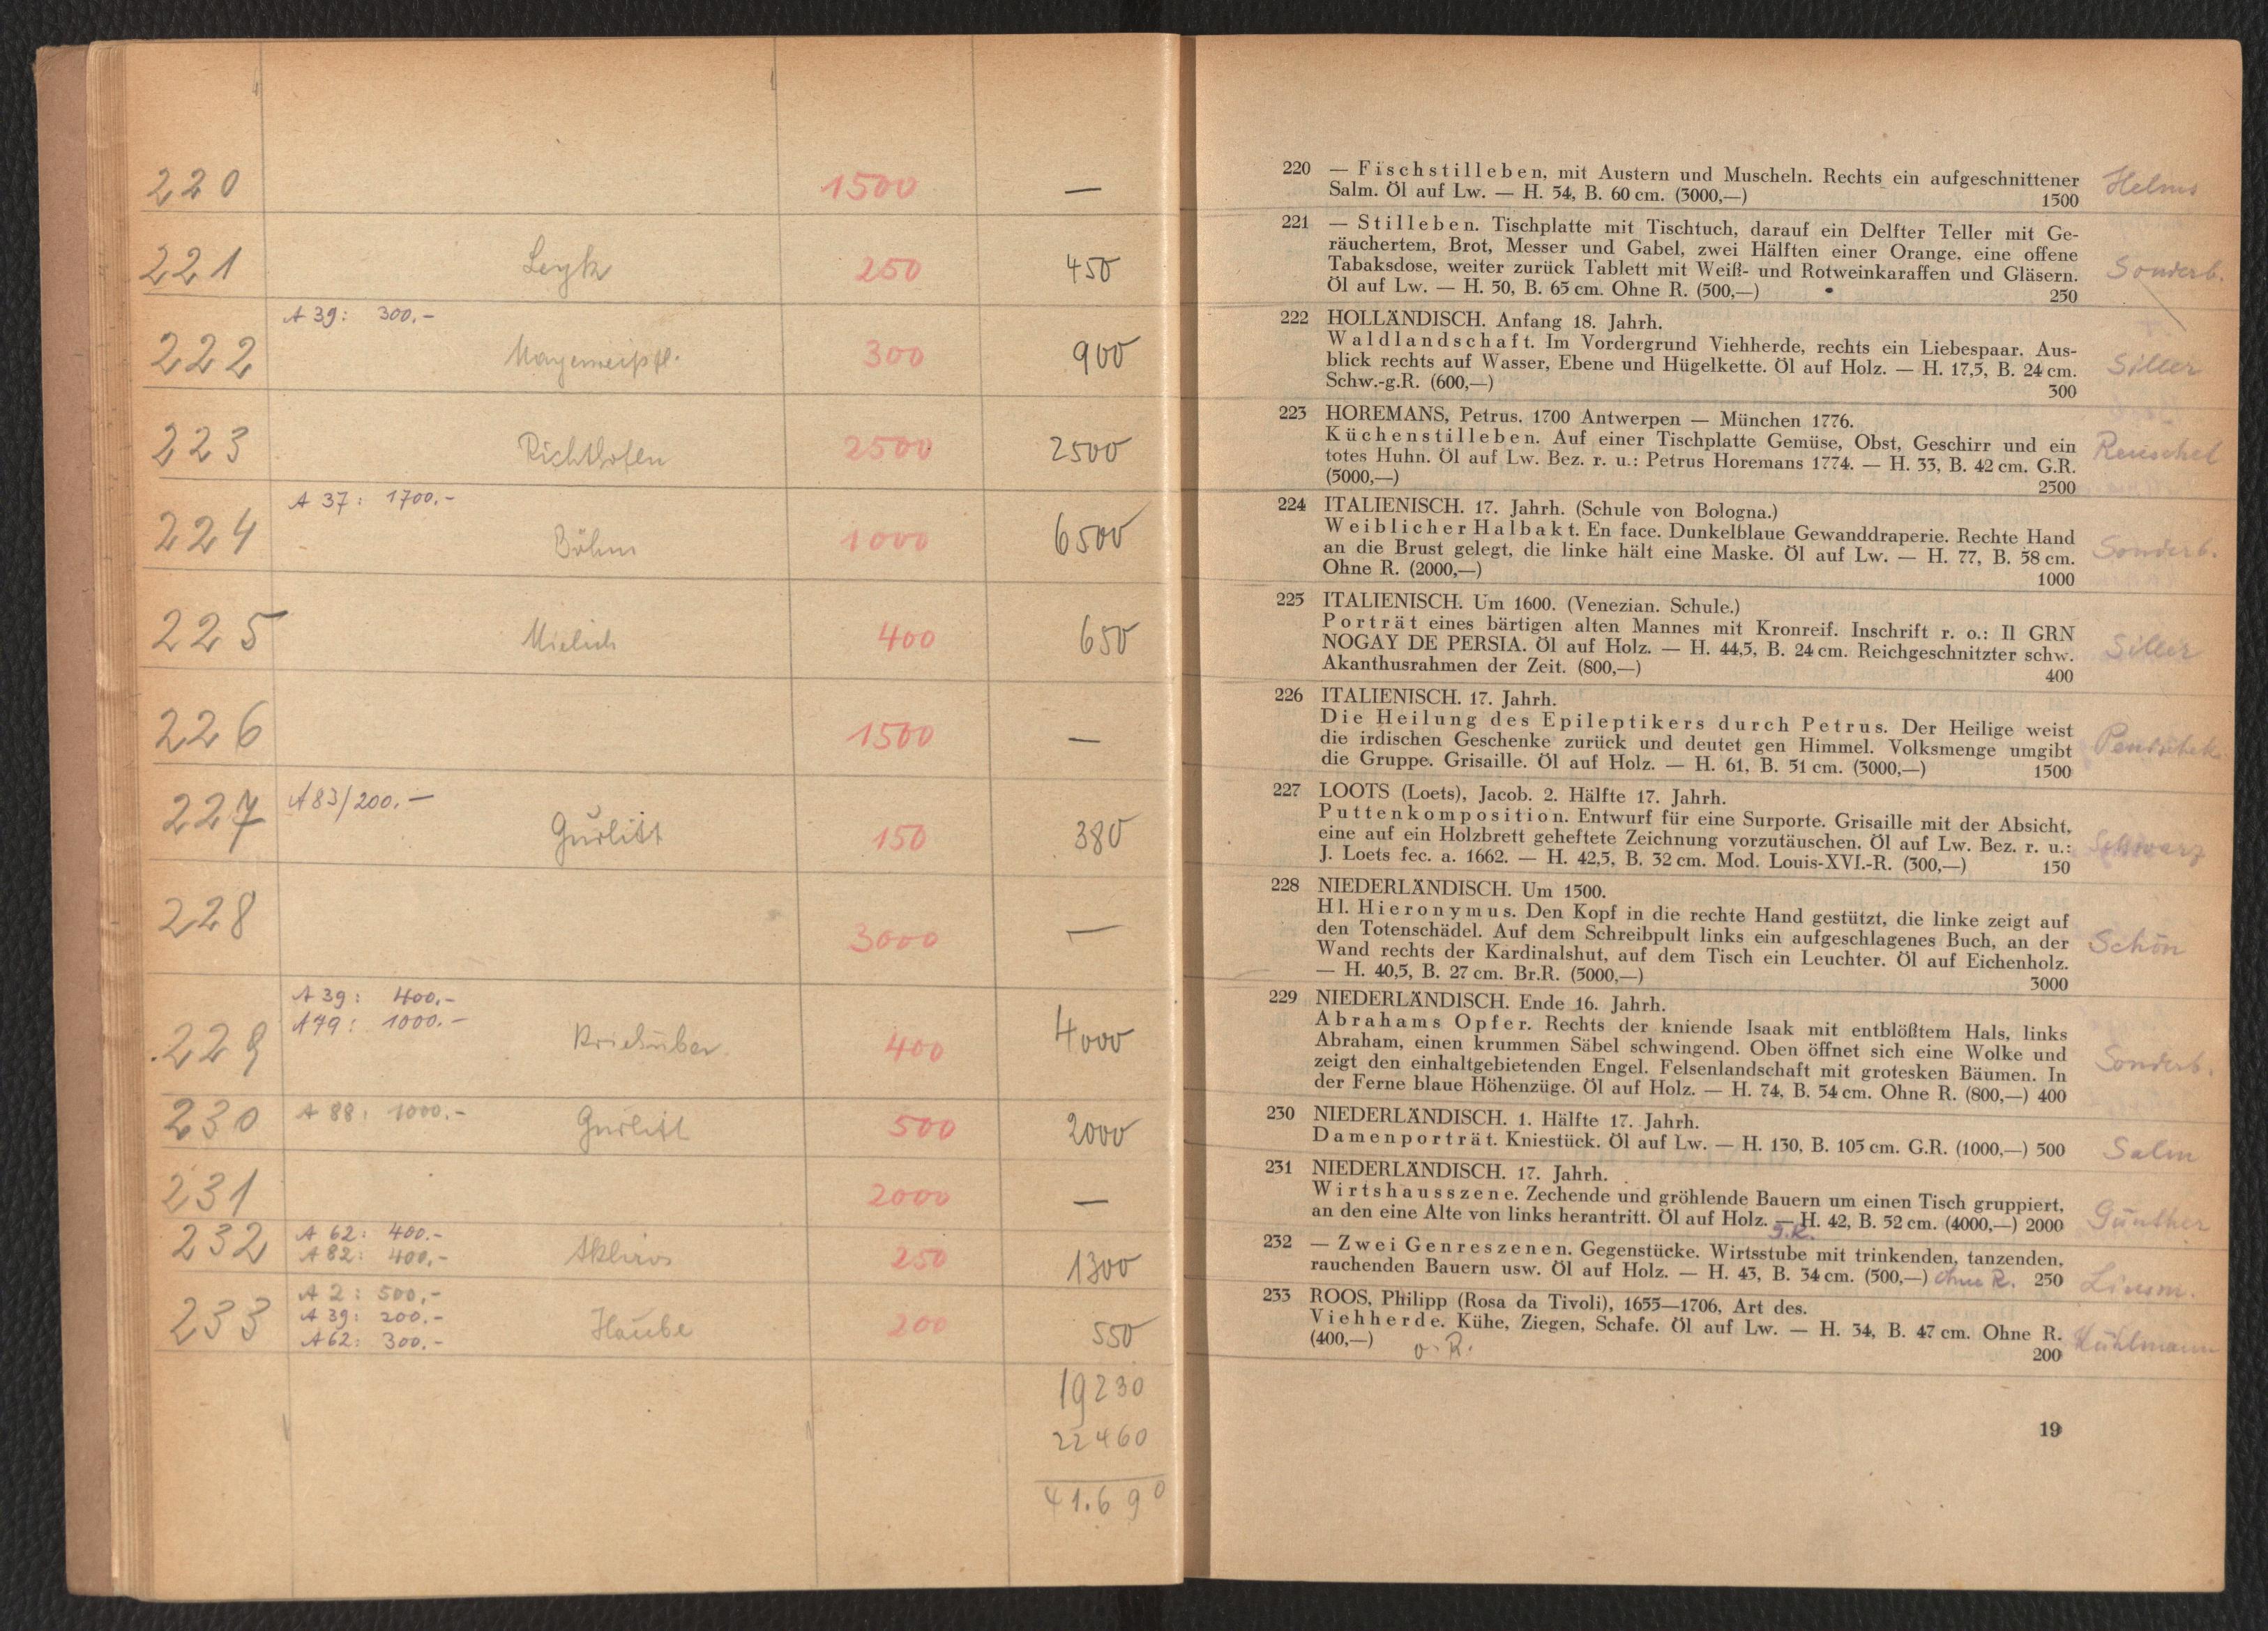 220 1500 —
221 Leyk 250 450
A 39: 300.-
222 300 900
223 Richthofen 2500 2500
A 37: 1700.-
224 Böhm 1000 6500
225 Mielich 400 650
226 1500 —
A 83/200.—
227 Gurlitt 150 380
228 3000 —
A 39: 400.-
A 79: 1000.-
229 400 4000
230 A 88: 1000.- Gurlitt 500 2000
231 2000 —
A 62: 400.-
232 A 82: 400.- 250 1300
A 2: 500.-
233 A 39: 200.- Haube 200 550
A 62: 300.-
19230
22460
41.690
220 — Fischstilleben, mit Austern und Muscheln. Rechts ein aufgeschnittener Helms
Salm. Öl auf Lw. — H. 34, B. 60 cm. (3000,—) 1500
221 — Stilleben. Tischplatte mit Tischtuch, darauf ein Delfter Teller mit Ge-
räuchertem, Brot, Messer und Gabel, zwei Hälften einer Orange, eine offene
Tabaksdose, weiter zurück Tablett mit Weiß- und Rotweinkaraffen und Gläsern. Sonderb.
Öl auf Lw. — H. 50, B. 65 cm. Ohne R. (500,—) 250
222 HOLLÄNDISCH. Anfang 18. Jahrh.
Waldlandschaft. Im Vordergrund Viehherde, rechts ein Liebespaar. Aus-
blick rechts auf Wasser, Ebene und Hügelkette. Öl auf Holz. — H. 17,5, B. 24 cm. Siller
Schw.-g.R. (600,—) 300
223 HOREMANS, Petrus. 1700 Antwerpen — München 1776.
Küchenstilleben. Auf einer Tischplatte Gemüse, Obst, Geschirr und ein Reuschel
totes Huhn. Öl auf Lw. Bez. r. u.: Petrus Horemans 1774. — H. 33, B. 42 cm. G.R.
(5000,—) 2500
224 ITALIENISCH. 17. Jahrh. (Schule von Bologna.)
Weiblicher Halbakt. En face. Dunkelblaue Gewanddraperie. Rechte Hand
an die Brust gelegt, die linke hält eine Maske. Öl auf Lw. — H. 77, B. 58 cm. Sonderb.
Ohne R. (2000,—) 1000
225 ITALIENISCH. Um 1600. (Venezian. Schule.)
Porträt eines bärtigen alten Mannes mit Kronreif. Inschrift r. o.: Il GRN
NOGAY DE PERSIA. Öl auf Holz. — H. 44,5, B. 24 cm. Reichgeschnitzter schw. Siller
Akanthusrahmen der Zeit. (800,—) 400
226 ITALIENISCH. 17. Jahrh.
Die Heilung des Epileptikers durch Petrus. Der Heilige weist
die irdischen Geschenke zurück und deutet gen Himmel. Volksmenge umgibt
die Gruppe. Grisaille. Öl auf Holz. — H. 61, B. 51 cm. (3000,—) 1500
227 LOOTS (Loets), Jacob. 2. Hälfte 17. Jahrh.
Puttenkomposition. Entwurf für eine Surporte. Grisaille mit der Absicht,
eine auf ein Holzbrett geheftete Zeichnung vorzutäuschen. Öl auf Lw. Bez. r. u.: Schwarz
J. Loets fec. a. 1662. — H. 42,5, B. 32 cm. Mod. Louis-XVI.-R. (300,—) 150
228 NIEDERLÄNDISCH. Um 1500.
Hl. Hieronymus. Den Kopf in die rechte Hand gestützt, die linke zeigt auf
den Totenschädel. Auf dem Schreibpult links ein aufgeschlagenes Buch, an der Schön
Wand rechts der Kardinalshut, auf dem Tisch ein Leuchter. Öl auf Eichenholz.
— H. 40,5, B. 27 cm. Br.R. (5000,—) 3000
229 NIEDERLÄNDISCH. Ende 16. Jahrh.
Abrahams Opfer. Rechts der kniende Isaak mit entblößtem Hals, links
Abraham, einen krummen Säbel schwingend. Oben öffnet sich eine Wolke und
zeigt den einhaltgebietenden Engel. Felsenlandschaft mit grotesken Bäumen. In Sonderb.
der Ferne blaue Höhenzüge. Öl auf Holz. — H. 74, B. 54 cm. Ohne R. (800,—) 400
230 NIEDERLÄNDISCH. 1. Hälfte 17. Jahrh.
Damenporträt. Kniestück. Öl auf Lw. — H. 130, B. 105 cm. G.R. (1000,—) 500 Salm
231 NIEDERLÄNDISCH. 17. Jahrh.
Wirtshausszene. Zechende und gröhlende Bauern um einen Tisch gruppiert,
an den eine Alte von links herantritt. Öl auf Holz. — H. 42, B. 52 cm. (4000,—) 2000 Günther
G.R.
232 — Zwei Genreszenen. Gegenstücke. Wirtsstube mit trinkenden, tanzenden,
rauchenden Bauern usw. Öl auf Holz. — H. 43, B. 34 cm. (500,—) ohne R. 250
233 ROOS, Philipp (Rosa da Tivoli), 1655—1706, Art des.
Viehherde. Kühe, Ziegen, Schafe. Öl auf Lw. — H. 34, B. 47 cm. Ohne R.
(400,—) o. R. 200 Mühlmann
19